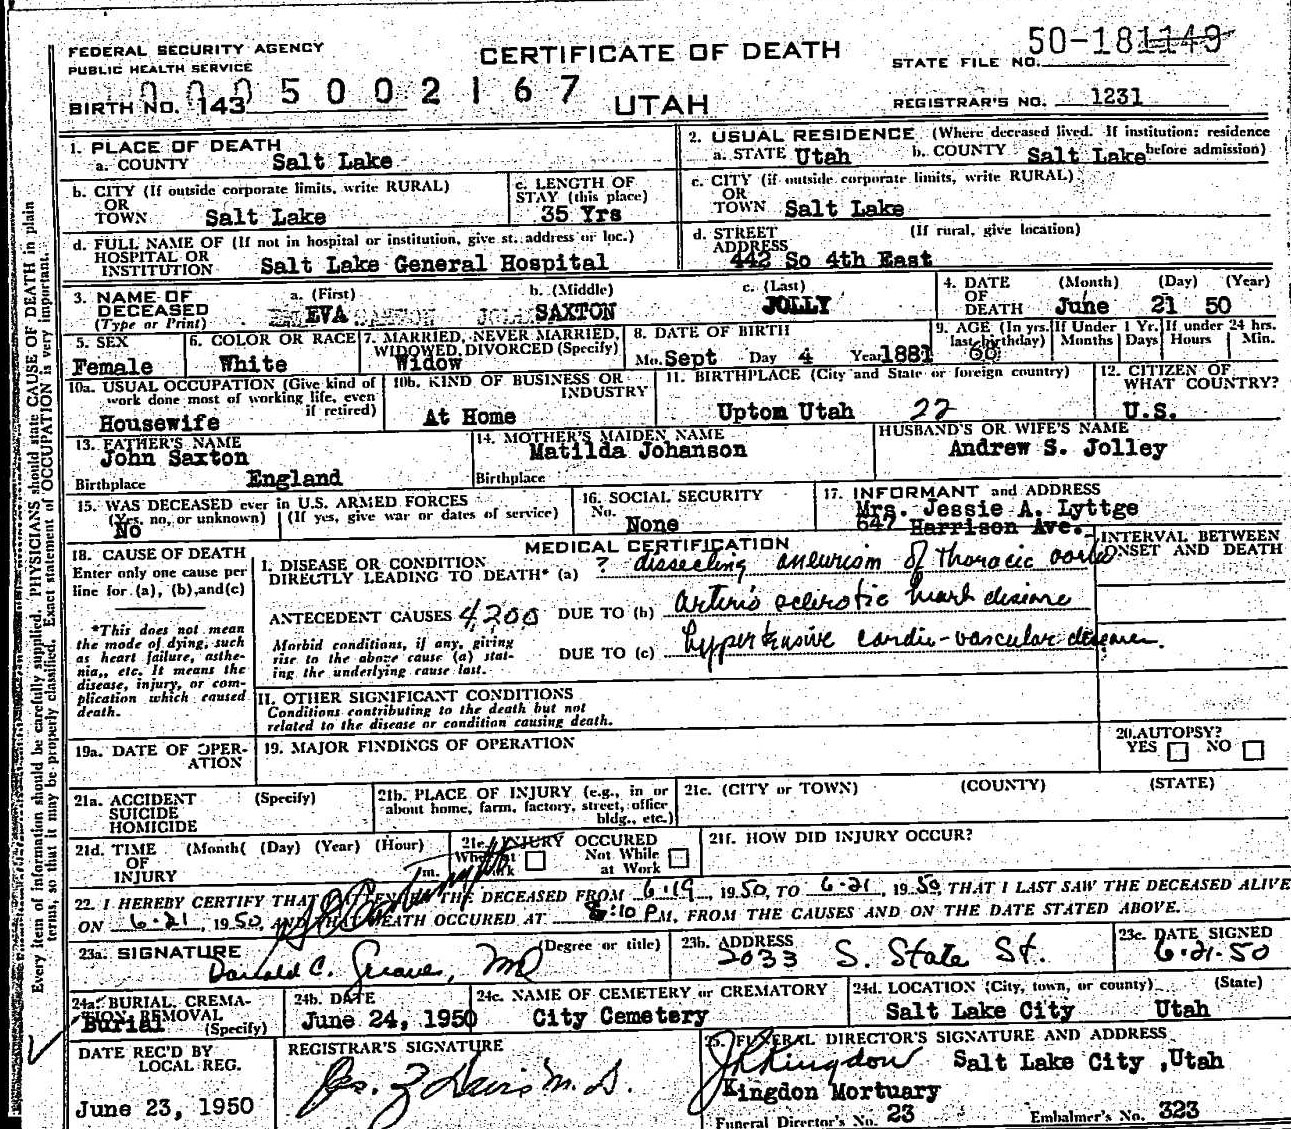 FEDERAL SECURITY AGENCY
PUBLIC HEALTH SERVICE
CERTIFICATE OF DEATH
50-181149
STATE FILE NO.
BIRTH NO. 143 5 0 0 2 1 6 7
UTAH
REGISTRAR'S NO. 1231
1. PLACE OF DEATH
a. COUNTY Salt Lake
2. USUAL RESIDENCE (Where deceased lived. If institution: residence before admission)
a. STATE Utah b. COUNTY Salt Lake
b. CITY (If outside corporate limits, write RURAL)
OR
TOWN Salt Lake
c. LENGTH OF
STAY (this place)
35 Yrs
c. CITY (if outside corporate limits, write RURAL)
OR
TOWN Salt Lake
d. FULL NAME OF (If not in hospital or institution, give st. address or loc.)
HOSPITAL OR
INSTITUTION Salt Lake General Hospital
d. STREET (If rural, give location)
ADDRESS
442 So 4th East
3. NAME OF
DECEASED
(Type or Print)
a. (First) b. (Middle) c. (Last)
EVA SAXTON JOLLY
4. DATE (Month) (Day) (Year)
OF
DEATH June 21 50
5. SEX
Female
6. COLOR OR RACE
White
7. MARRIED, NEVER MARRIED,
WIDOWED, DIVORCED (Specify)
Widow
8. DATE OF BIRTH
Mo. Sept Day 4 Year 1881
9. AGE (In yrs. last birthday)
If Under 1 Yr. If under 24 hrs.
Months Days Hours Min.
10a. USUAL OCCUPATION (Give kind of
work done most of working life, even
if retired)
Housewife
10b. KIND OF BUSINESS OR
INDUSTRY
At Home
11. BIRTHPLACE (City and State or foreign country)
Upton Utah 22
12. CITIZEN OF
WHAT COUNTRY?
U.S.
13. FATHER'S NAME
John Saxton
Birthplace England
14. MOTHER'S MAIDEN NAME
Matilda Johanson
Birthplace
HUSBAND'S OR WIFE'S NAME
Andrew S. Jolley
15. WAS DECEASED ever in U.S. ARMED FORCES
(Yrs, no, or unknown) (If yes, give war or dates of service)
No
16. SOCIAL SECURITY
No.
None
17. INFORMANT and ADDRESS
Mrs. Jessie A. Lyttge
647 Harrison Ave.
18. CAUSE OF DEATH
Enter only one cause per
line for (a), (b), and (c)
*This does not mean
the mode of dying, such
as heart failure, asthe-
nia,, etc. It means the
disease, injury, or com-
plication which caused
death.
MEDICAL CERTIFICATION
INTERVAL BETWEEN
ONSET AND DEATH
I. DISEASE OR CONDITION
DIRECTLY LEADING TO DEATH* (a) ? dissecting aneurism of thoracic aorta
ANTECEDENT CAUSES 4200 DUE TO (b) arterio sclerotic heart disease
Morbid conditions, if any, giving
rise to the above cause (a) stat-
ing the underlying cause last.
DUE TO (c) hypertensive cardio-vascular disease.
II. OTHER SIGNIFICANT CONDITIONS
Conditions contributing to the death but not
related to the disease or condition causing death.
19a. DATE OF OPER-
ATION
19. MAJOR FINDINGS OF OPERATION
20. AUTOPSY?
YES NO
21a. ACCIDENT (Specify)
SUICIDE
HOMICIDE
21b. PLACE OF INJURY (e.g., in or
about home, farm, factory, street, office
bldg., etc.)
21c. (CITY or TOWN) (COUNTY) (STATE)
21d. TIME (Month( (Day) (Year) (Hour)
OF
INJURY m.
21e. INJURY OCCURED
While at Work Not While
at Work
21f. HOW DID INJURY OCCUR?
22. I HEREBY CERTIFY THAT THE DECEASED FROM 6-19, 1950, TO 6-21, 1950 THAT I LAST SAW THE DECEASED ALIVE
ON 6-21, 1950, AND THAT DEATH OCCURED AT 8:10 PM, FROM THE CAUSES AND ON THE DATE STATED ABOVE.
23a. SIGNATURE (Degree or title)
Donald C. MD
23b. ADDRESS
2033 S. State St.
23c. DATE SIGNED
6-21-50
24a. BURIAL, CREMA-
TION, REMOVAL
(Specify)
Burial
24b. DATE
June 24, 1950
24c. NAME OF CEMETERY or CREMATORY
City Cemetery
24d. LOCATION (City, town, or county) (State)
Salt Lake City Utah
DATE REC'D BY
LOCAL REG.
June 23, 1950
REGISTRAR'S SIGNATURE
25. FUNERAL DIRECTOR'S SIGNATURE AND ADDRESS
Kingdon Salt Lake City ,Utah
Kingdon Mortuary
Funeral Director's No. 23 Embalmer's No. 323
Every item of information should be carefully supplied. PHYSICIANS should state CAUSE OF DEATH in plain
terms, so that it may be properly classified. Exact statement of OCCUPATION is very important.